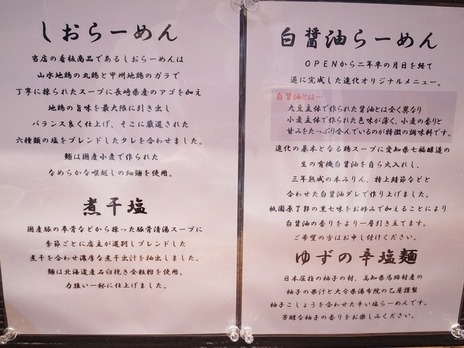 しおらーめん
当店の看板商品であるしおらーめんは
山水地鶏の丸鶏と甲州地鶏のガラで
丁寧に採られたスープに長崎県産のアゴを加え
地鶏の旨味を最大限に引き出し
バランス良く仕上げ、そこに厳選された
六種類の塩をブレンドしたタレを合わせました。
麺は国産小麦で作られた
なめらかな喉越しの細麺を使用。
煮干塩
国産豚の拳骨などから採った豚骨清湯スープに
季節ごとに店主が選別しブレンドした
煮干を合わせ濃厚な煮干出汁を抽出しました。
麺は北海道産石臼挽き全粒粉を使用。
力強い一杯に仕上げました。
白醤油らーめん
OPENから二年半の月日を経て
遂に完成した進化オリジナルメニュー。
白醤油とは…
大豆主体で作られた醤油とは全く異なり
小麦主体で作られた色味が薄く、小麦の香りと
甘みをたっぷり含んでいるのが特徴の調味料です。
進化の基本となる鶏スープに愛知県七福醸造の
生の有機白醤油を自ら火入れし、
三年熟成の本みりん、特上鯖節などと
合わせた白醤油ダレで作り上げました。
祇園原了郭の黒七味をお好みで加えることにより
白醤油の香りをより一層引き立てます。
ご希望の方はお申し付けください。
ゆずの辛塩麺
日本屈指の柚子の村、高知県馬路村産の
柚子の果汁と大分県湯布院の乙屋謹製
柚子こしょうを合わせた辛い塩らーめんです。
芳醇な柚子の香りをお楽しみください。